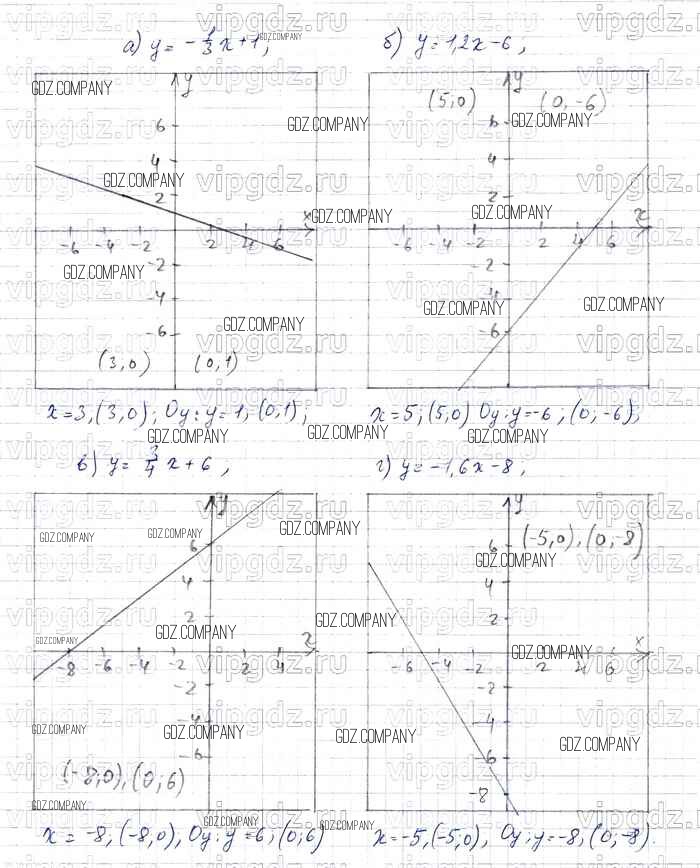 а) y = -1/3 x + 1; б) y = 1,2x - 6;
GDZ.COMPANY
vipgdz.ru
y
6
4
2
x
-6 -4 -2 2 4 6
-2
-4
-6
(3,0) (0,1)
(5,0) y (0,-6)
6
4
2
x
-6 -4 -2 2 4 6
-2
-4
-6
x=3, (3,0), Oy: y=1, (0,1); x=5; (5,0) Oy: y=-6; (0,-6),
в) y = 3/4 x + 6, г) y = -1,6x - 8,
y
6
4
2
x
-8 -6 -4 -2 2 4
-2
-4
-6
(-8,0), (0,6)
y (-5,0), (0,-8)
6
4
2
x
-6 -4 -2 2 4 6
-2
-4
-6
-8
x = -8, (-8,0), Oy: y=6; (0;6) x=-5, (-5;0), Oy: y=-8, (0;-8).